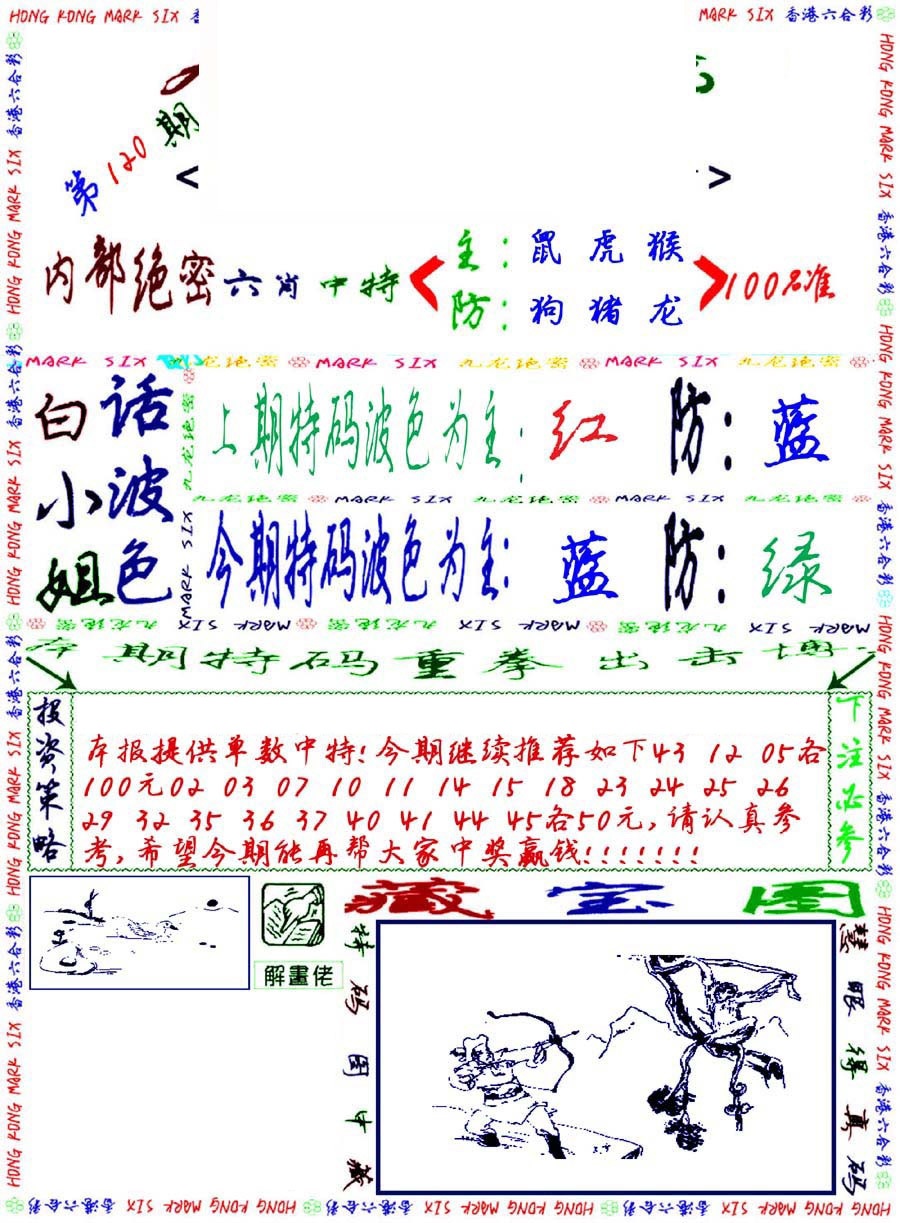 HONG KONG MARK SIX
MARK SIX 香港六合彩
第120期
< >
内部绝密六肖中特
主:鼠虎猴
防:狗猪龙
100%准
MARK SIX 九龙绝密 MARK SIX 九龙绝密 MARK SIX 九龙绝密
白话
小波
姐色
九龙绝密
MARK SIX
上期特码波色为主:红 防:蓝
九龙绝密 MARK SIX 九龙绝密 MARK SIX 九龙绝密
今期特码波色为主:蓝 防:绿
九龙绝密 MARK SIX 九龙绝密 MARK SIX 九龙绝密 MARK SIX
期特码重拳出击
投资策略
本报提供单数中特!今期继续推荐如下43 12 05各
100元02 03 07 10 11 14 15 18 23 24 25 26
29 32 35 36 37 40 41 44 45各50元,请认真参
考,希望今期能再帮大家中奖赢钱!!!!!!!
下注必参
解畫佬
藏宝图
特码图中藏
慧眼得真码
HONG KONG MARK SIX 香港六合彩